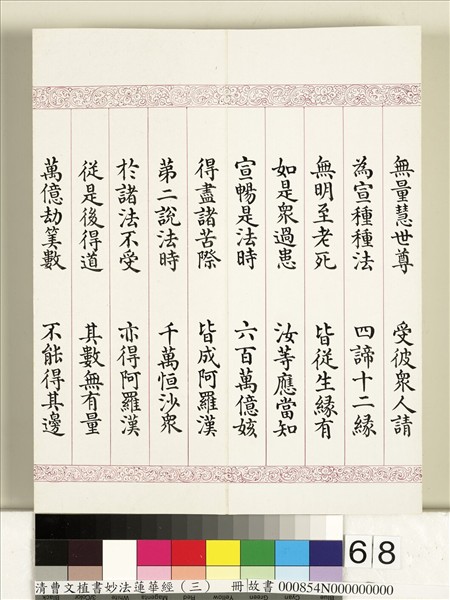 無量慧世尊 受彼衆人請
為宣種種法 四諦十二緣
無明至老死 皆從生緣有
如是衆過患 汝等應當知
宣暢是法時 六百萬億姟
得盡諸苦際 皆成阿羅漢
第二說法時 千萬恒沙衆
於諸法不受 亦得阿羅漢
從是後得道 其數無有量
萬億劫筭數 不能得其邊
68
清曹文植書妙法蓮華經（三） 冊 故書 000854N000000000